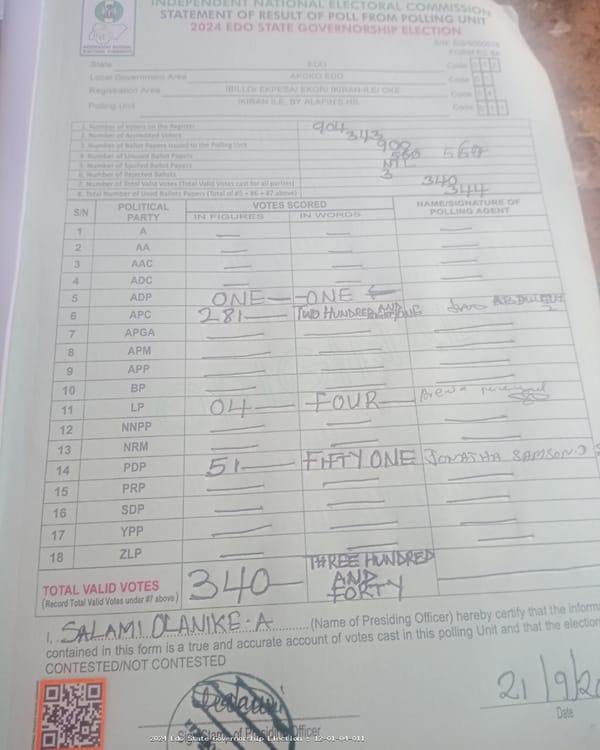 INDEPENDENT NATIONAL ELECTORAL COMMISSION
STATEMENT OF RESULT OF POLL FROM POLLING UNIT
2024 EDO STATE GOVERNORSHIP ELECTION
State EDO Code
Local Government Area AKOKO EDO Code
Registration Area IBILLO/ EKPESA/ EKOR/ IKIRAN-ILE/ OKE Code
Polling Unit IKIRAN ILE, BY ALAFIN'S HS. Code
1. Number of Voters on the Register 904
2. Number of Accredited Voters 343
3. Number of Ballot Papers Issued to the Polling Unit
4. Number of Unused Ballot Papers
5. Number of Spoiled Ballot Papers NIL
6. Number of Rejected Ballots 3
7. Number of Total Valid Votes (Total Valid Votes cast for all parties) 340
8. Total Number of Used Ballot Papers (Total of #5 + #6 + #7 above) 344
S/N POLITICAL PARTY VOTES SCORED NAME/SIGNATURE OF POLLING AGENT
IN FIGURES IN WORDS
1 A — — —
2 AA — — —
3 AAC — — —
4 ADC — — —
5 ADP ONE — ONE
6 APC 281 TWO HUNDRED AND
7 APGA — — —
8 APM — — —
9 APP — — —
10 BP — — —
11 LP 04 — FOUR
12 NNPP — — —
13 NRM — — —
14 PDP 51 — FIFTY ONE SAMSON
15 PRP — — —
16 SDP — — —
17 YPP — — —
18 ZLP — — —
TOTAL VALID VOTES 340 THREE HUNDRED AND FORTY
(Record Total Valid Votes under #7 above)
I, SALAMI OLANIKE. A (Name of Presiding Officer) hereby certify that the informa
contained in this form is a true and accurate account of votes cast in this polling Unit and that the election
CONTESTED/NOT CONTESTED
21/9/20
Date
2024 Edo State Governorship Election - 12-01-04-011